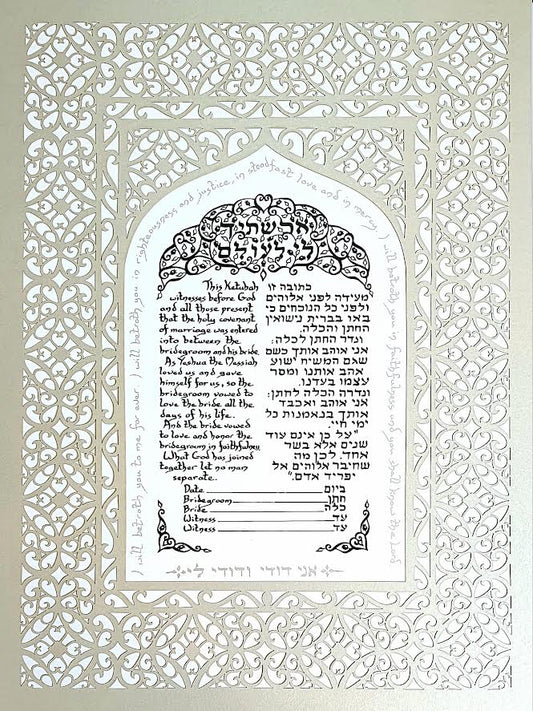 I will betroth you to me for ever. I will betroth you in righteousness and justice, in steadfast love and in mercy. I will betroth you in faithfulness and you shall know the Lord
וארשתיך
לי לעולם
This Ketubah
witnesses before God
and all those present
that the holy covenant
of marriage was entered
into between the
bridegroom and his bride.
As Yeshua the Messiah
loved us and gave
himself for us, so the
bridegroom vowed to
love the bride all the
days of his life.
And the bride vowed
to love and honor the
bridegroom in faithfulness
What God has joined
together let no man
separate.
כתובה זו
מעידה לפני אלוהים
ולפני כל הנוכחים כי
באו בברית נישואין
החתן והכלה.
ונדר החתן לכלה:
אני אוהב אותך כשם
שאם המשיח ישוע
אהב אותנו ומסר
עצמו בעדנו.
ונדרה הכלה לחתן:
אני אוהב ואכבד
אותך בנאמנות כל
ימי חיי.
"על כן אינם עוד
שנים אלא בשר
אחד. לכן מה
שחיבר אלוהים אל
יפריד אדם."
Date ביום
Bridegroom חתן
Bride כלה
Witness עד
Witness עד
אני לדודי ודודי לי